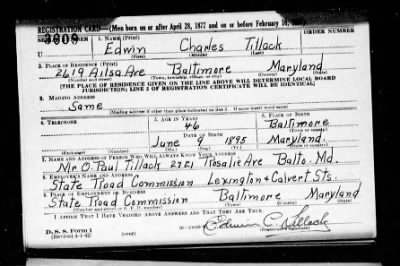 REGISTRATION CARD—(Men born on or after April 28, 1877 and on or before February 16,
SERIAL NUMBER 1. NAME (Print) ORDER NUMBER
U 3909 Edwin Charles Tillack
(First) (Middle) (Last)
2. PLACE OF RESIDENCE (Print)
2619 Ailsa Ave Baltimore Maryland
(Number and street) (Town, township, village, or city) (County) (State)
[THE PLACE OF RESIDENCE GIVEN ON THE LINE ABOVE WILL DETERMINE LOCAL BOARD
JURISDICTION; LINE 2 OF REGISTRATION CERTIFICATE WILL BE IDENTICAL]
3. MAILING ADDRESS
Same
[Mailing address if other than place indicated on line 2. If same insert word same]
4. TELEPHONE 5. AGE IN YEARS 6. PLACE OF BIRTH
46 Baltimore
DATE OF BIRTH (Town or county)
June 9 1895 Maryland.
(Mo.) (Day) (Yr.) (State or country)
7. NAME AND ADDRESS OF PERSON WHO WILL ALWAYS KNOW YOUR ADDRESS
Mr O. Paul Tillack 2721 Rosalie Ave Balto. Md.
8. EMPLOYER'S NAME AND ADDRESS
State Road Commission Lexington & Calvert Sts.
9. PLACE OF EMPLOYMENT OR BUSINESS
State Road Commission Baltimore Maryland
(Number and street or R. F. D. number) (Town) (County) (State)
I AFFIRM THAT I HAVE VERIFIED ABOVE ANSWERS AND THAT THEY ARE TRUE.
D. S. S. Form 1 Edwin C. Tillack
(Revised 4-1-42)